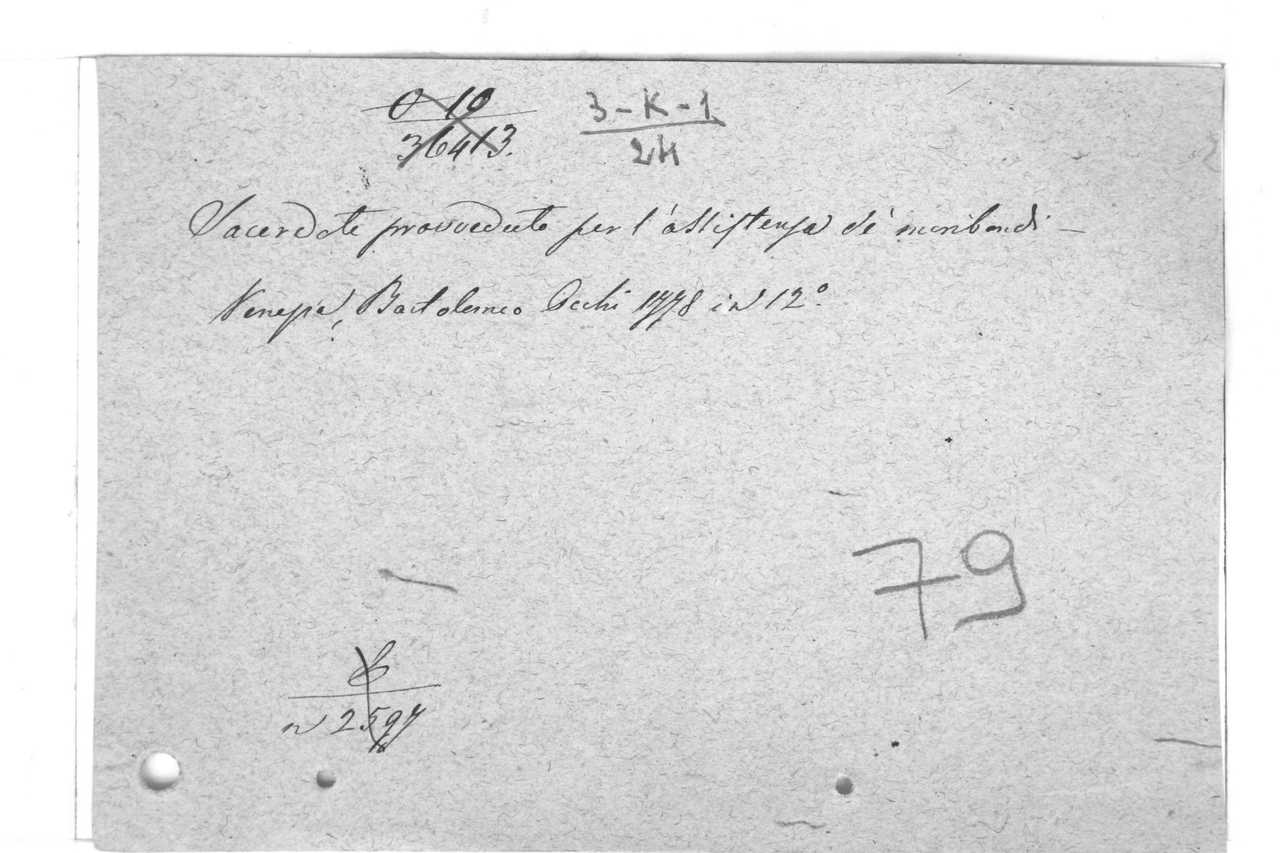 O 10
36413.
3-K-1
24
Sacerdote provveduto per l'assistenza de' moribondi -
Venezia, Bartolomeo Occhi 1778 in 12º.
79
n 2597